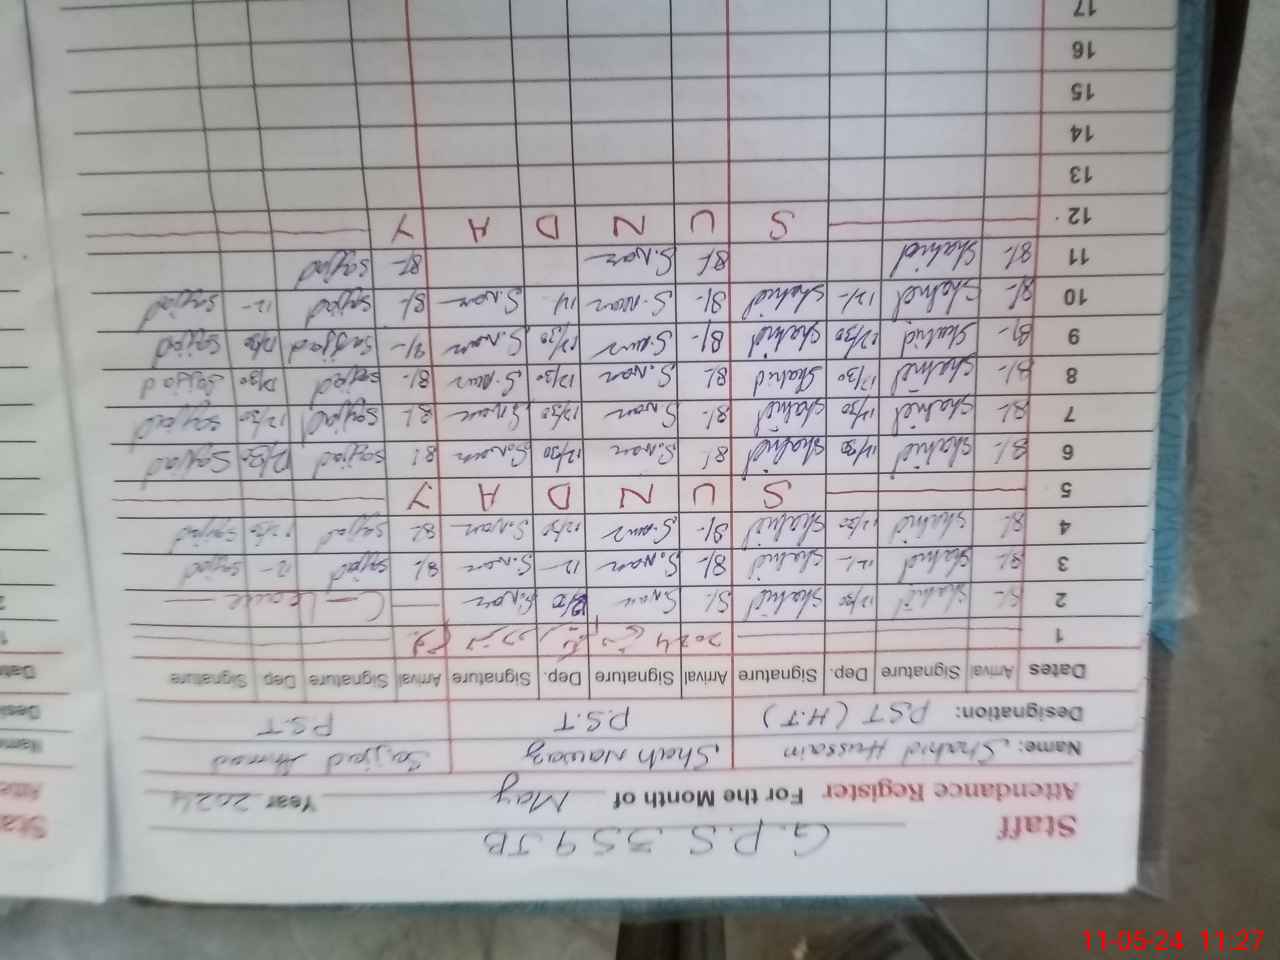 G.P.S 359 JB
Staff
Attendance Register For the Month of May Year 2024
Name: Shahid Hussain Shah Nawaz Sajjad Ahmad
Designation: P.S.T (H.T) P.S.T P.S.T
Dates Arrival Signature Dep. Signature Arrival Signature Dep. Signature Arrival Signature Dep Signature
1 2024
2 8/- Shahid 12/30 Shahid 8/- S.naw 12/30 S.naw — Leave —
3 8/- Shahid 12/- Shahid 8/- S.naw 12- S.naw 8/- Sajjad 12- Sajjad
4 8/- Shahid 12/30 Shahid 8/- S.naw 12/30 S.naw 8/- Sajjad 12/30 Sajjad
5 S U N D A Y
6 8/- Shahid 12/30 Shahid 8/- S.naw 12/30 S.naw 8/- Sajjad 12/30 Sajjad
7 8/- Shahid 12/30 Shahid 8/- S.naw 12/30 S.naw 8/- Sajjad 12/30 Sajjad
8 8/- Shahid 12/30 Shahid 8/- S.naw 12/30 S.naw 8/- Sajjad 12/30 Sajjad
9 8/- Shahid 12/30 Shahid 8/- S.naw 12/30 S.naw 8/- Sajjad 12/30 Sajjad
10 8/- Shahid 12/- Shahid 8/- S.naw 12 S.naw 8/- Sajjad 12- Sajjad
11 8/- Shahid 8/- S.naw 8/- Sajjad
12 S U N D A Y
13
14
15
16
17
11-05-24 11:27